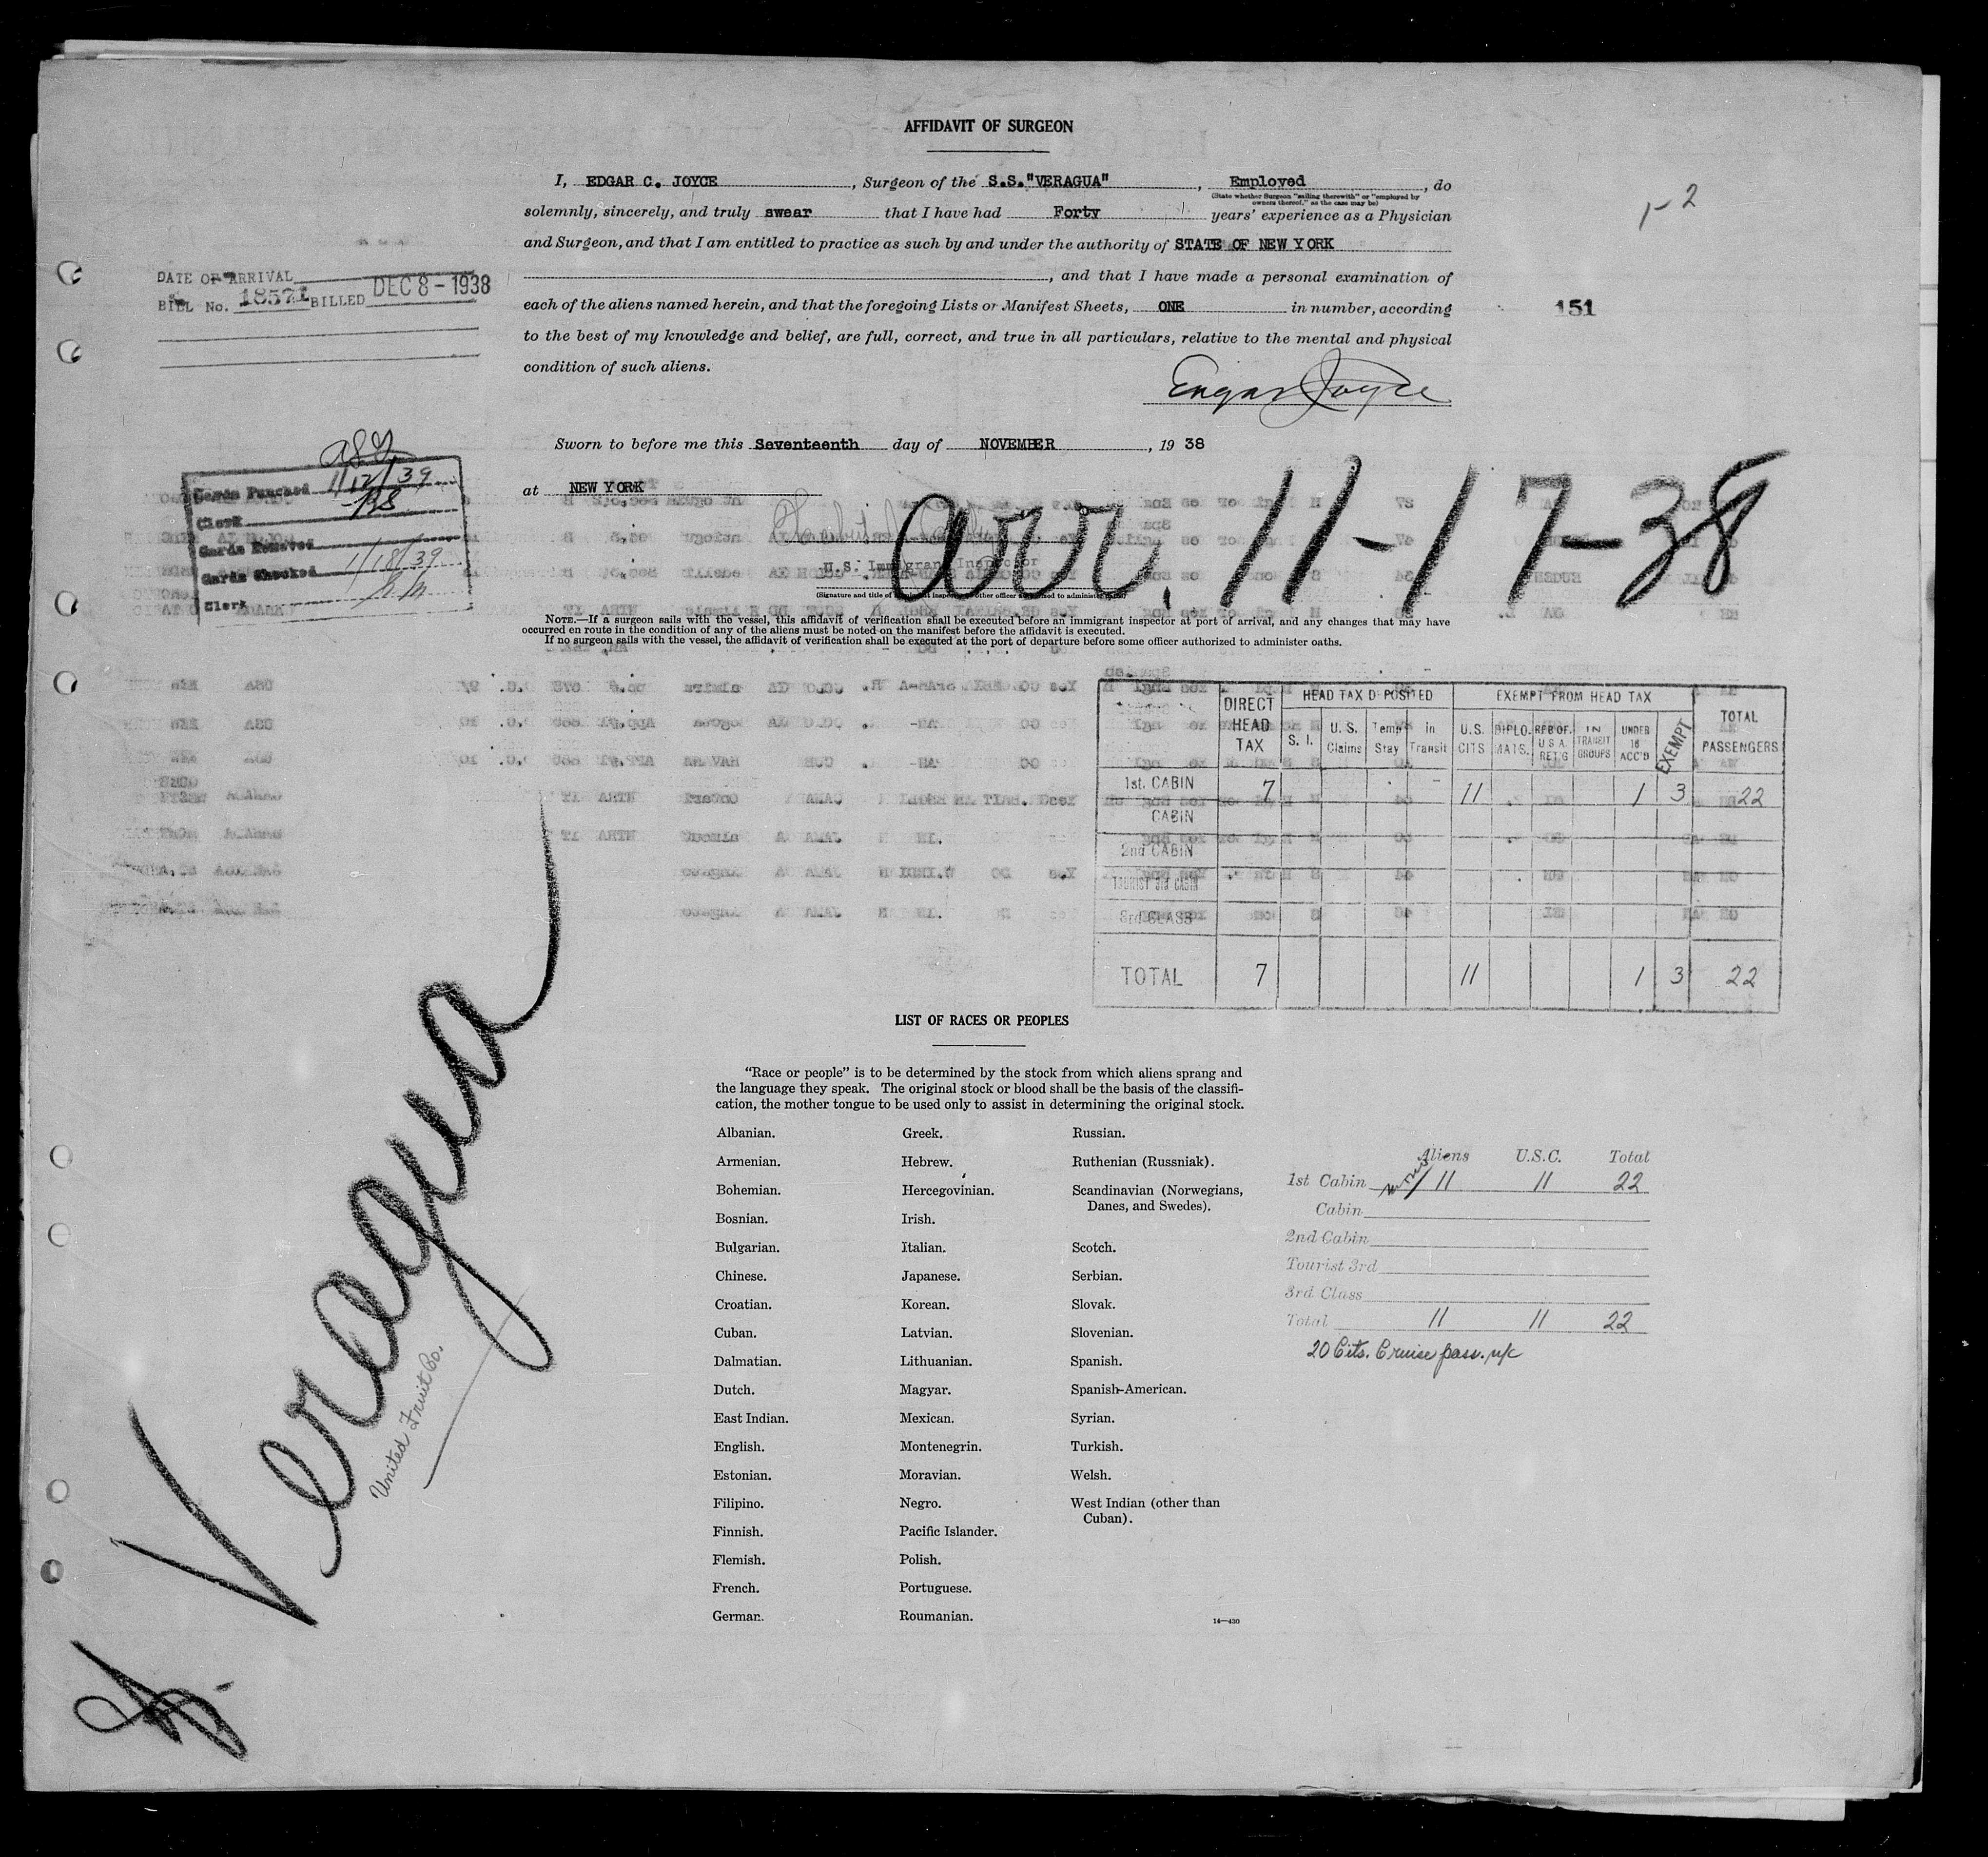 AFFIDAVIT OF SURGEON
I, EDGAR C. JOYCE, Surgeon of the S.S."VERAGUA", Employed, do
(State whether Surgeon "sailing therewith" or "employed by
owners thereof," as the case may be)
solemnly, sincerely, and truly swear that I have had Forty years' experience as a Physician
and Surgeon, and that I am entitled to practice as such by and under the authority of STATE OF NEW YORK
, and that I have made a personal examination of
each of the aliens named herein, and that the foregoing Lists or Manifest Sheets, ONE in number, according
to the best of my knowledge and belief, are full, correct, and true in all particulars, relative to the mental and physical
condition of such aliens.
Edgar Joyce
Sworn to before me this Seventeenth day of NOVEMBER, 19 38
at NEW YORK
U.S. Immigrant Inspector
NOTE.—If a surgeon sails with the vessel, this affidavit of verification shall be executed before an immigrant inspector at port of arrival, and any changes that may have
occurred en route in the condition of any of the aliens must be noted on the manifest before the affidavit is executed.
If no surgeon sails with the vessel, the affidavit of verification shall be executed at the port of departure before some officer authorized to administer oaths.
1-2
151
DATE OF ARRIVAL
BILL No. 18571 BILLED DEC 8 - 1938
Cards Punched 1/12/39
Clerk
Cards Removed
Cards Checked 1/18/39
Clerk
arr. 11-17-38
DIRECT HEAD TAX
HEAD TAX DEPOSITED
EXEMPT FROM HEAD TAX
TOTAL PASSENGERS
S. I. U. S. Claims Temp Stay In Transit U.S. CITS DIPLO-MATS. RES OF. U.S.A. RET'G IN TRANSIT GROUPS UNDER 16 ACC'D EXEMPT
1st. CABIN 7 11 1 3 22
CABIN
2nd CABIN
TOURIST 3rd CABIN
3rd CLASS
TOTAL 7 11 1 3 22
LIST OF RACES OR PEOPLES
"Race or people" is to be determined by the stock from which aliens sprang and
the language they speak. The original stock or blood shall be the basis of the classifi-
cation, the mother tongue to be used only to assist in determining the original stock.
Albanian.
Armenian.
Bohemian.
Bosnian.
Bulgarian.
Chinese.
Croatian.
Cuban.
Dalmatian.
Dutch.
East Indian.
English.
Estonian.
Filipino.
Finnish.
Flemish.
French.
German.
Greek.
Hebrew.
Hercegovinian.
Irish.
Italian.
Japanese.
Korean.
Latvian.
Lithuanian.
Magyar.
Mexican.
Montenegrin.
Moravian.
Negro.
Pacific Islander.
Polish.
Portuguese.
Roumanian.
Russian.
Ruthenian (Russniak).
Scandinavian (Norwegians,
Danes, and Swedes).
Scotch.
Serbian.
Slovak.
Slovenian.
Spanish.
Spanish-American.
Syrian.
Turkish.
Welsh.
West Indian (other than
Cuban).
14—430
Aliens U.S.C. Total
1st Cabin 11 11 22
Cabin
2nd Cabin
Tourist 3rd
3rd Class
Total 11 11 22
20 Cits. Cruise pass. n/c
Veragua
United Fruit Co.